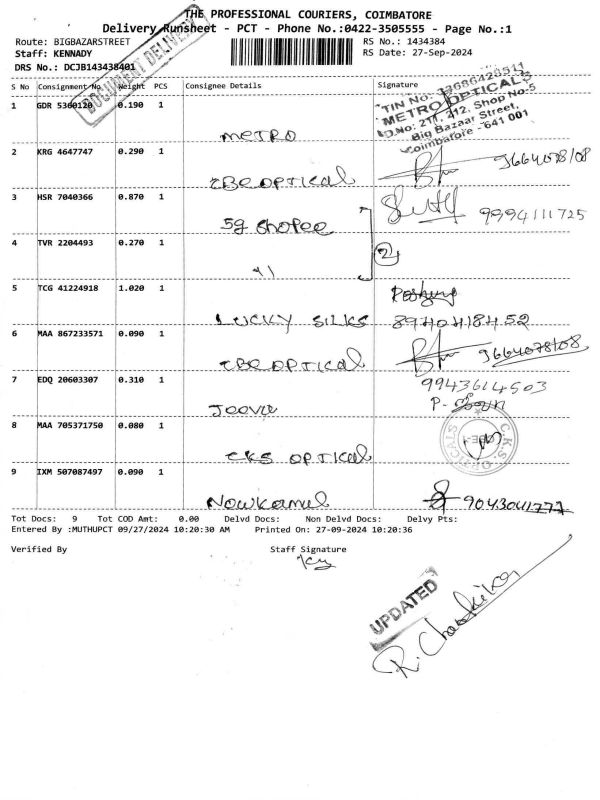 THE PROFESSIONAL COURIERS, COIMBATORE
Delivery Runsheet - PCT - Phone No.:0422-3505555 - Page No.:1
Route: BIGBAZARSTREET
RS No.: 1434384
Staff: KENNADY
RS Date: 27-Sep-2024
DRS No.: DCJB143438401
DOCUMENT DELIVERY
S No Consignment No Weight PCS Consignee Details Signature
1 GDR 5360120 0.190 1
METRO
TIN No: 33686428511
METRO OPTICALS
D.No: 211, 212, Shop No.5
Big Bazaar Street,
Coimbatore - 641 001
2 KRG 4647747 0.290 1
CBE OPTICAL
9664078108
3 HSR 7040366 0.870 1
5g Shopee
9994111725
4 TVR 2204493 0.270 1
"
2
5 TCG 41224918 1.020 1
LUCKY SILKS
8940418452
6 MAA 867233571 0.090 1
CBE OPTICAL
9664078108
7 EDQ 20603307 0.310 1
Jeeva
9943614503
8 MAA 705371750 0.080 1
CKS OPTICAL
C.K.S. OPTICALS
CBE-1
9 IXM 507087497 0.090 1
9043041777
Tot Docs: 9 Tot COD Amt: 0.00 Delvd Docs: Non Delvd Docs: Delvy Pts:
Entered By :MUTHUPCT 09/27/2024 10:20:30 AM Printed On: 27-09-2024 10:20:36
Verified By
Staff Signature
UPDATED